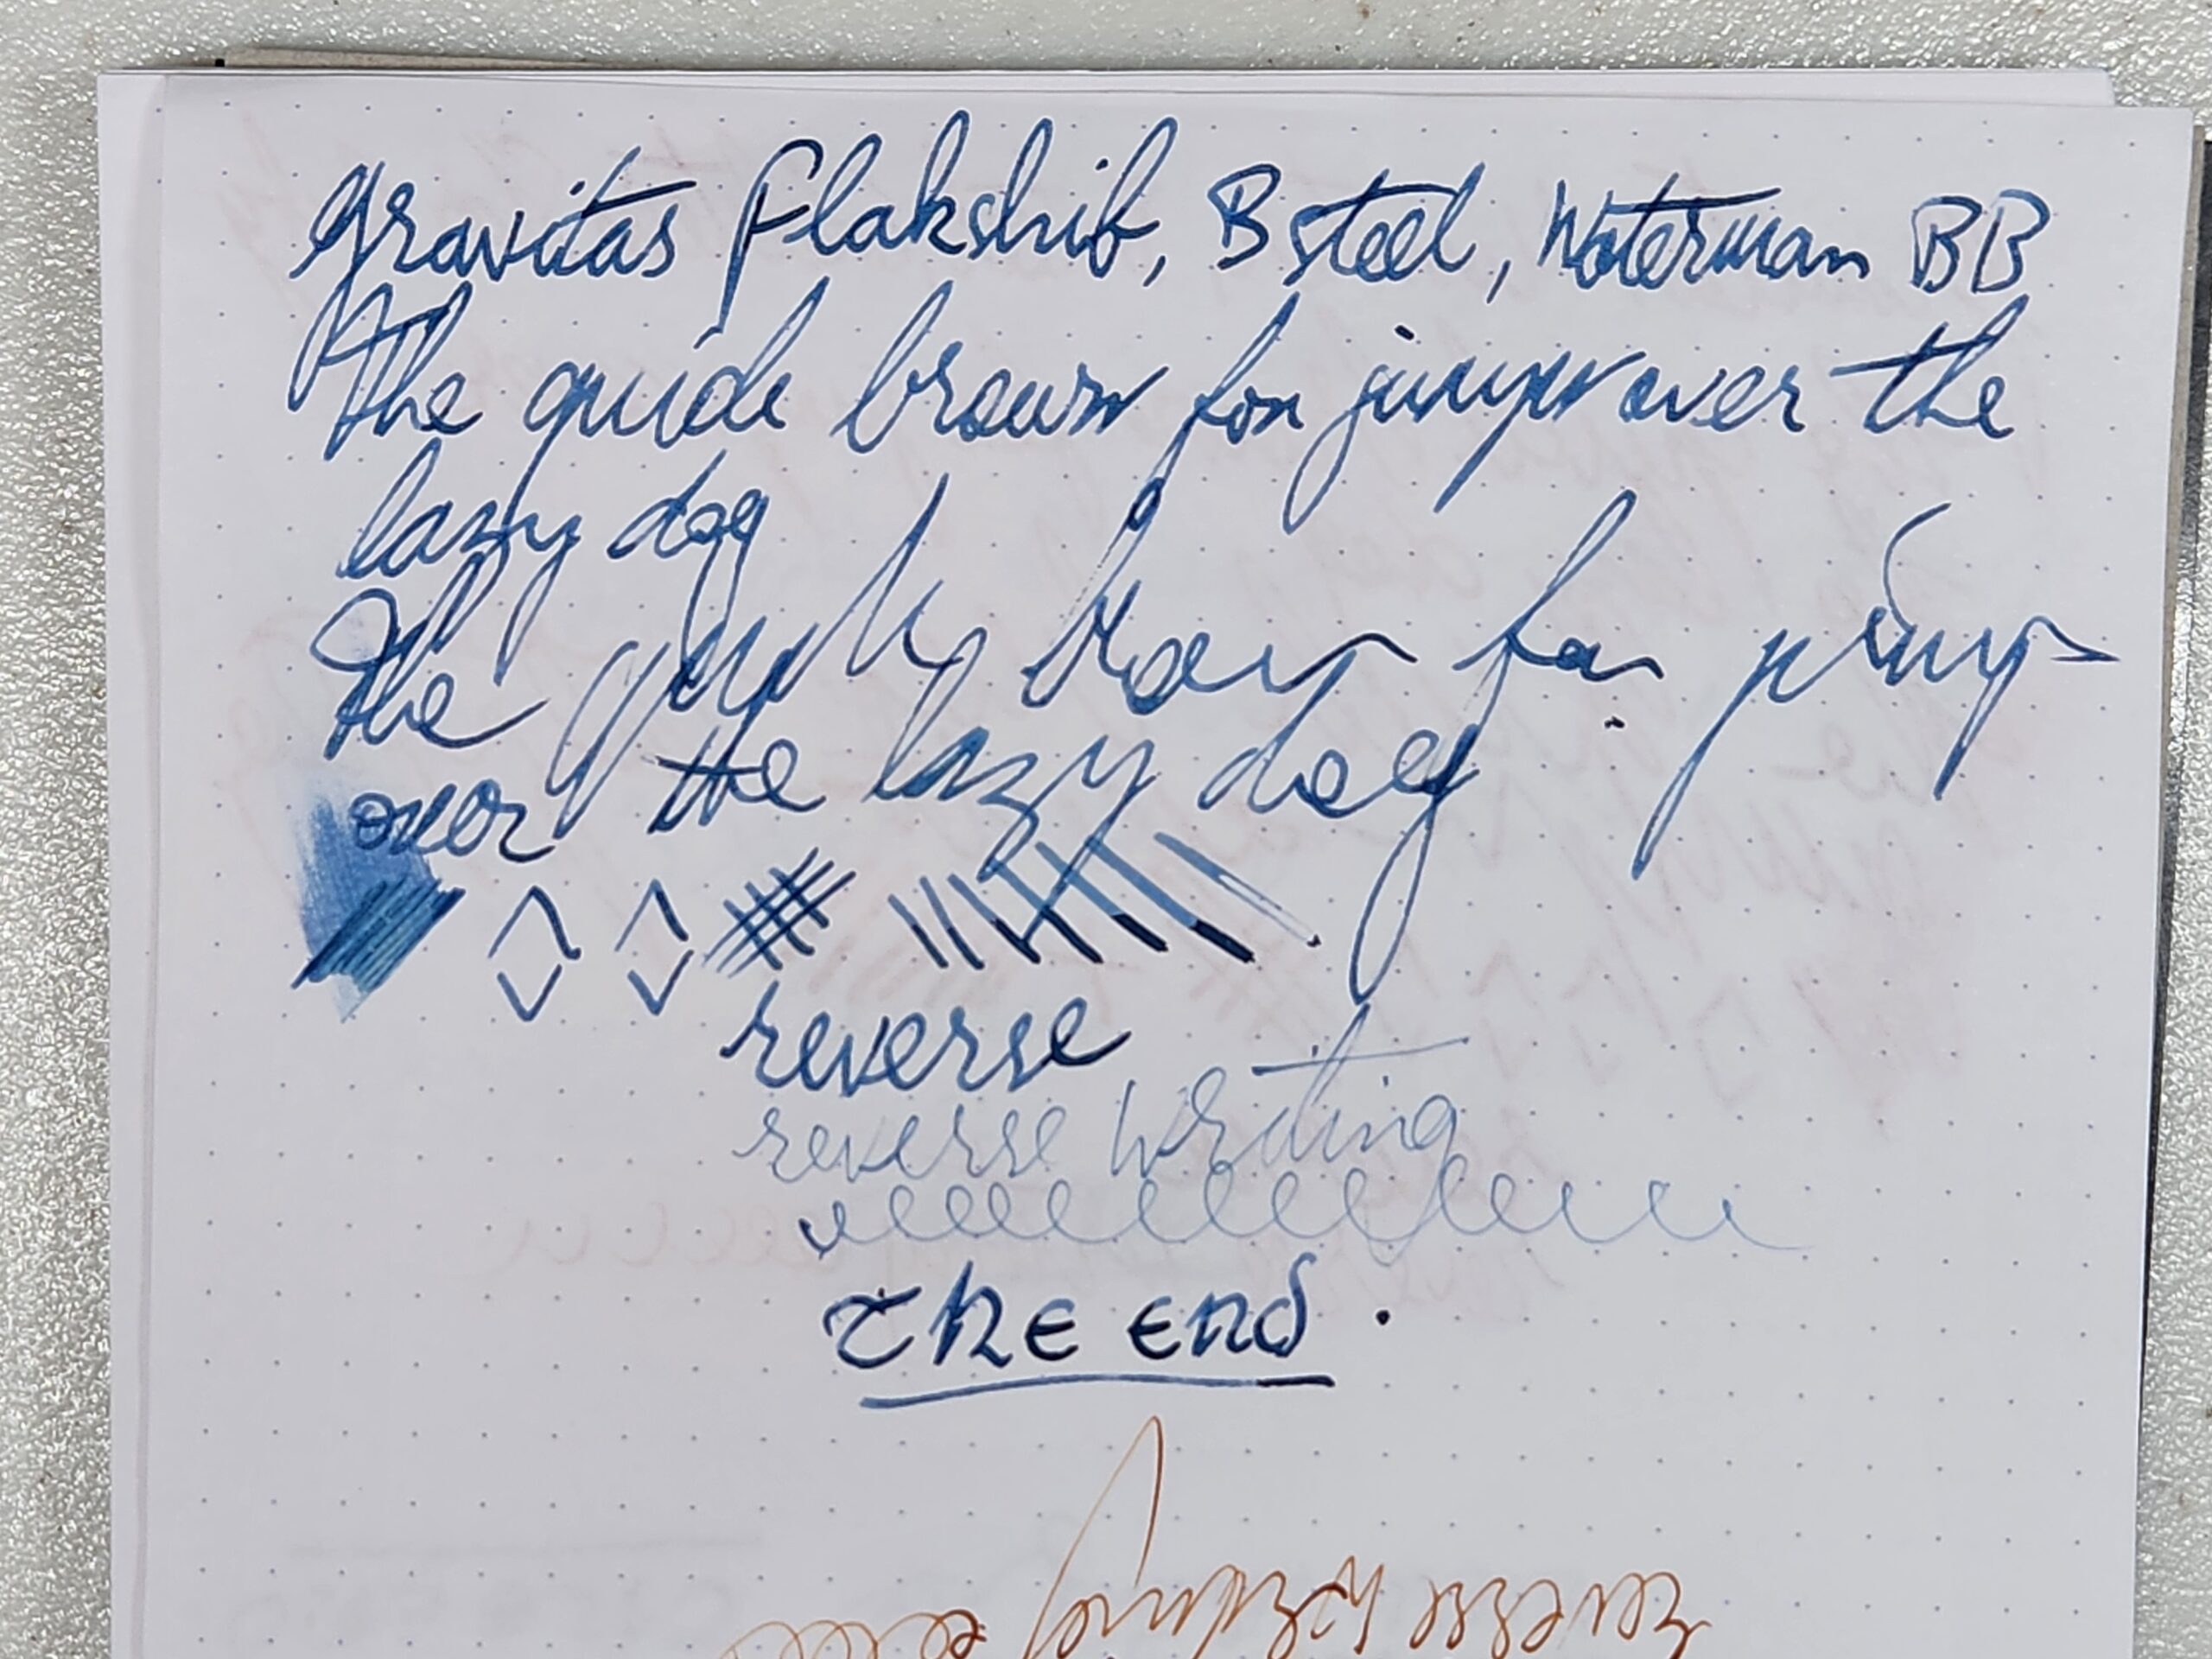 Gravitas Flakship, B steel, Waterman BB
The quick brown fox jumps over the
lazy dog
The quick brown fox jump
over the lazy dog
reverse
reverse writing
the end.
reverse writing